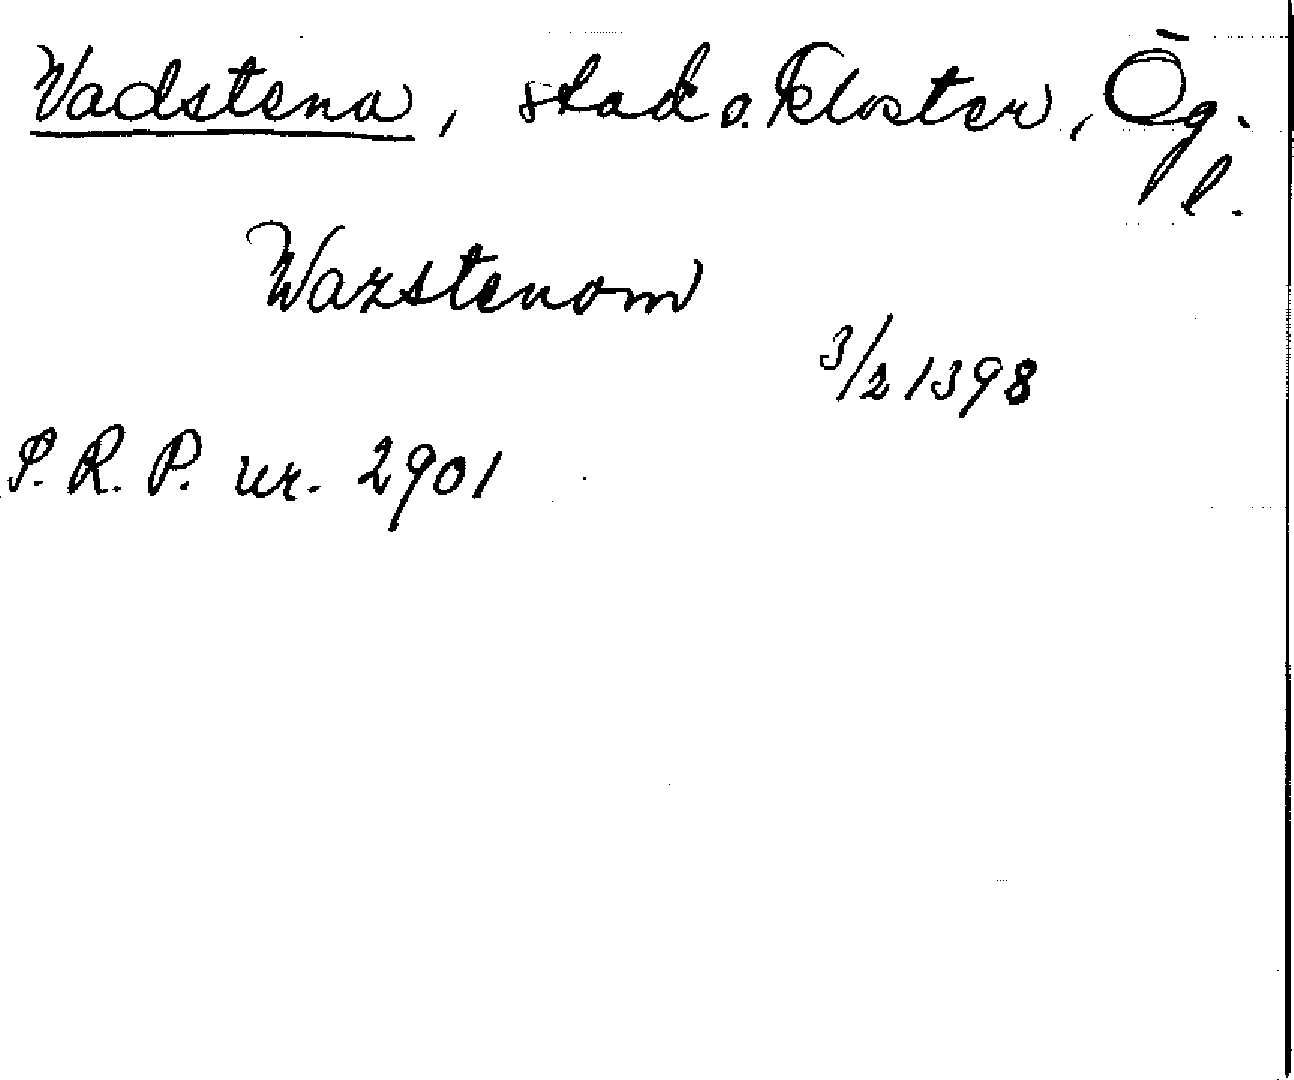 Vadstena, stad o. kloster, Ög.
l.
Wazstenom
3/2 1398
S.R.P. nr. 2901